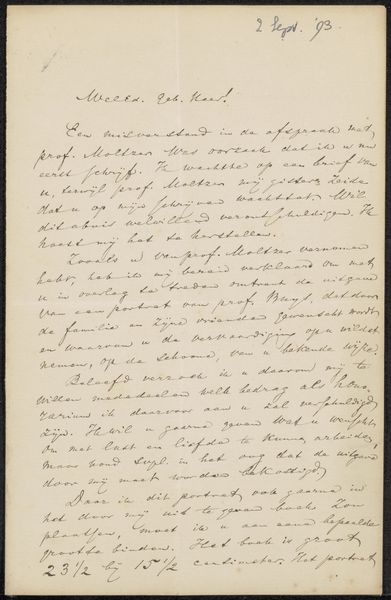 2 Sept. '93.
WelEd. Geb. Heer!
Een misverstand in de afspraak met
prof. Moltzer was oorzaak dat ik u nu
eerst schrijf. Ik wachtte op een brief van
u, terwijl prof. Moltzer mij gister zeide
dat u op mijn schrijven wachttet. Wil
dit abuis welwillend verontschuldigen. Ik
haast mij het te herstellen.
Zooals u van prof. Moltzer vernomen
hebt, heb ik mij bereid verklaard om met
u in overleg te treden omtrent de uitgave
van een portret van prof. Buys, dat door
de familie en zijne vrienden gewenscht wordt
en waarvan u de vervaardiging op u wildet
nemen, op de schoone, van u bekende wijze.
Beleefd verzoek ik u daarom mij te
willen mededeelen welk bedrag als hono-
rarium ik daarvoor aan u zal verschuldigd
zijn. Ik wil u gaarne geven wat u wenscht,
om met lust en liefde te kunnen arbeiden,
maar houd svpl. in het oog dat de uitgave
door mij moet worden bekostigd.
Daar ik dit portret ook gaarne in
het door mij uit te geven boek zou
plaatsen, moet ik u aan eene bepaalde
grootte binden. Het boek is groot
23 1/2 bij 15 1/2 centimeter. Het portret